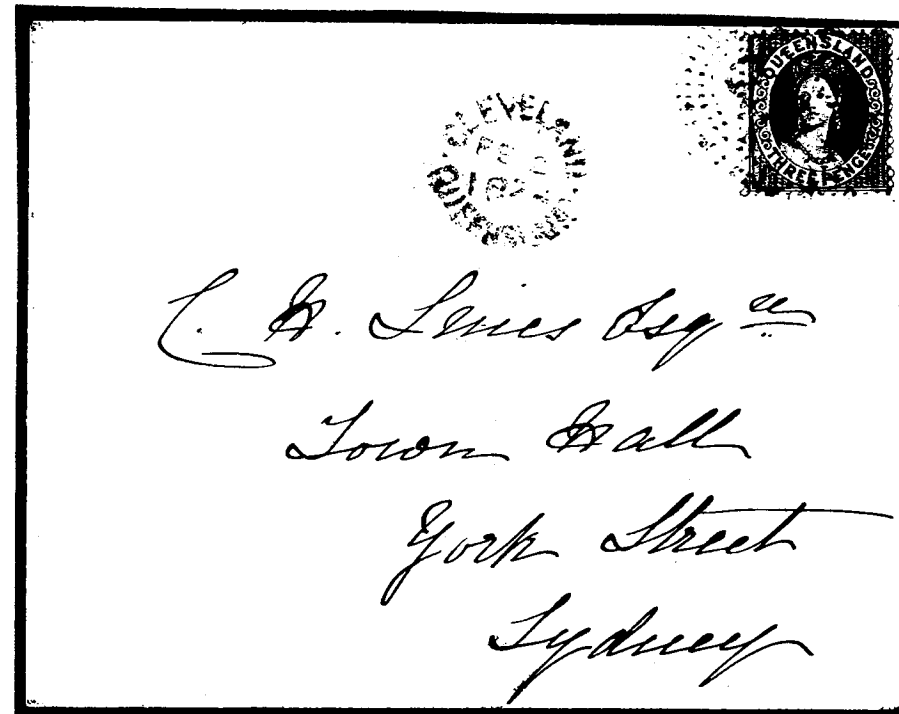 QUEENSLAND
THREE PENCE
CLEVELAND
QUEENSLAND
C. H. Esqre
Town Hall
York Street
Sydney